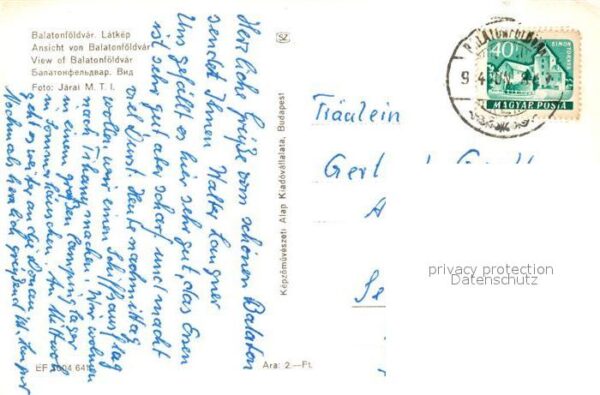 Balatonföldvár. Látkép
Ansicht von Balatonföldvár
View of Balatonföldvár
Балатонфельдвар. Вид
Foto: Járai M. T. I.
Herzliche Grüße vom schönen Balaton
sendet Ihnen Walter Langner
Uns gefällt es hier sehr gut, das Essen
ist sehr gut aber scharf und macht
viel Durst. Heute nachmittag
wollen wir einen Schiffsausflug
nach Tihany machen. Wir wohnen
in einem großen Campinglager
in Sommerhäuschen. Am Mittwoch
geht es weiter an die Donau.
Nochmals herzlich grüßend
EF
Ara: 2.—Ft.
Képzőművészeti Alap Kiadóvállalata, Budapest
BALATONFÖLDVÁR
40
SIMONTORNYA
MAGYAR POSTA
Fräulein
Gert
privacy protection
Datenschutz